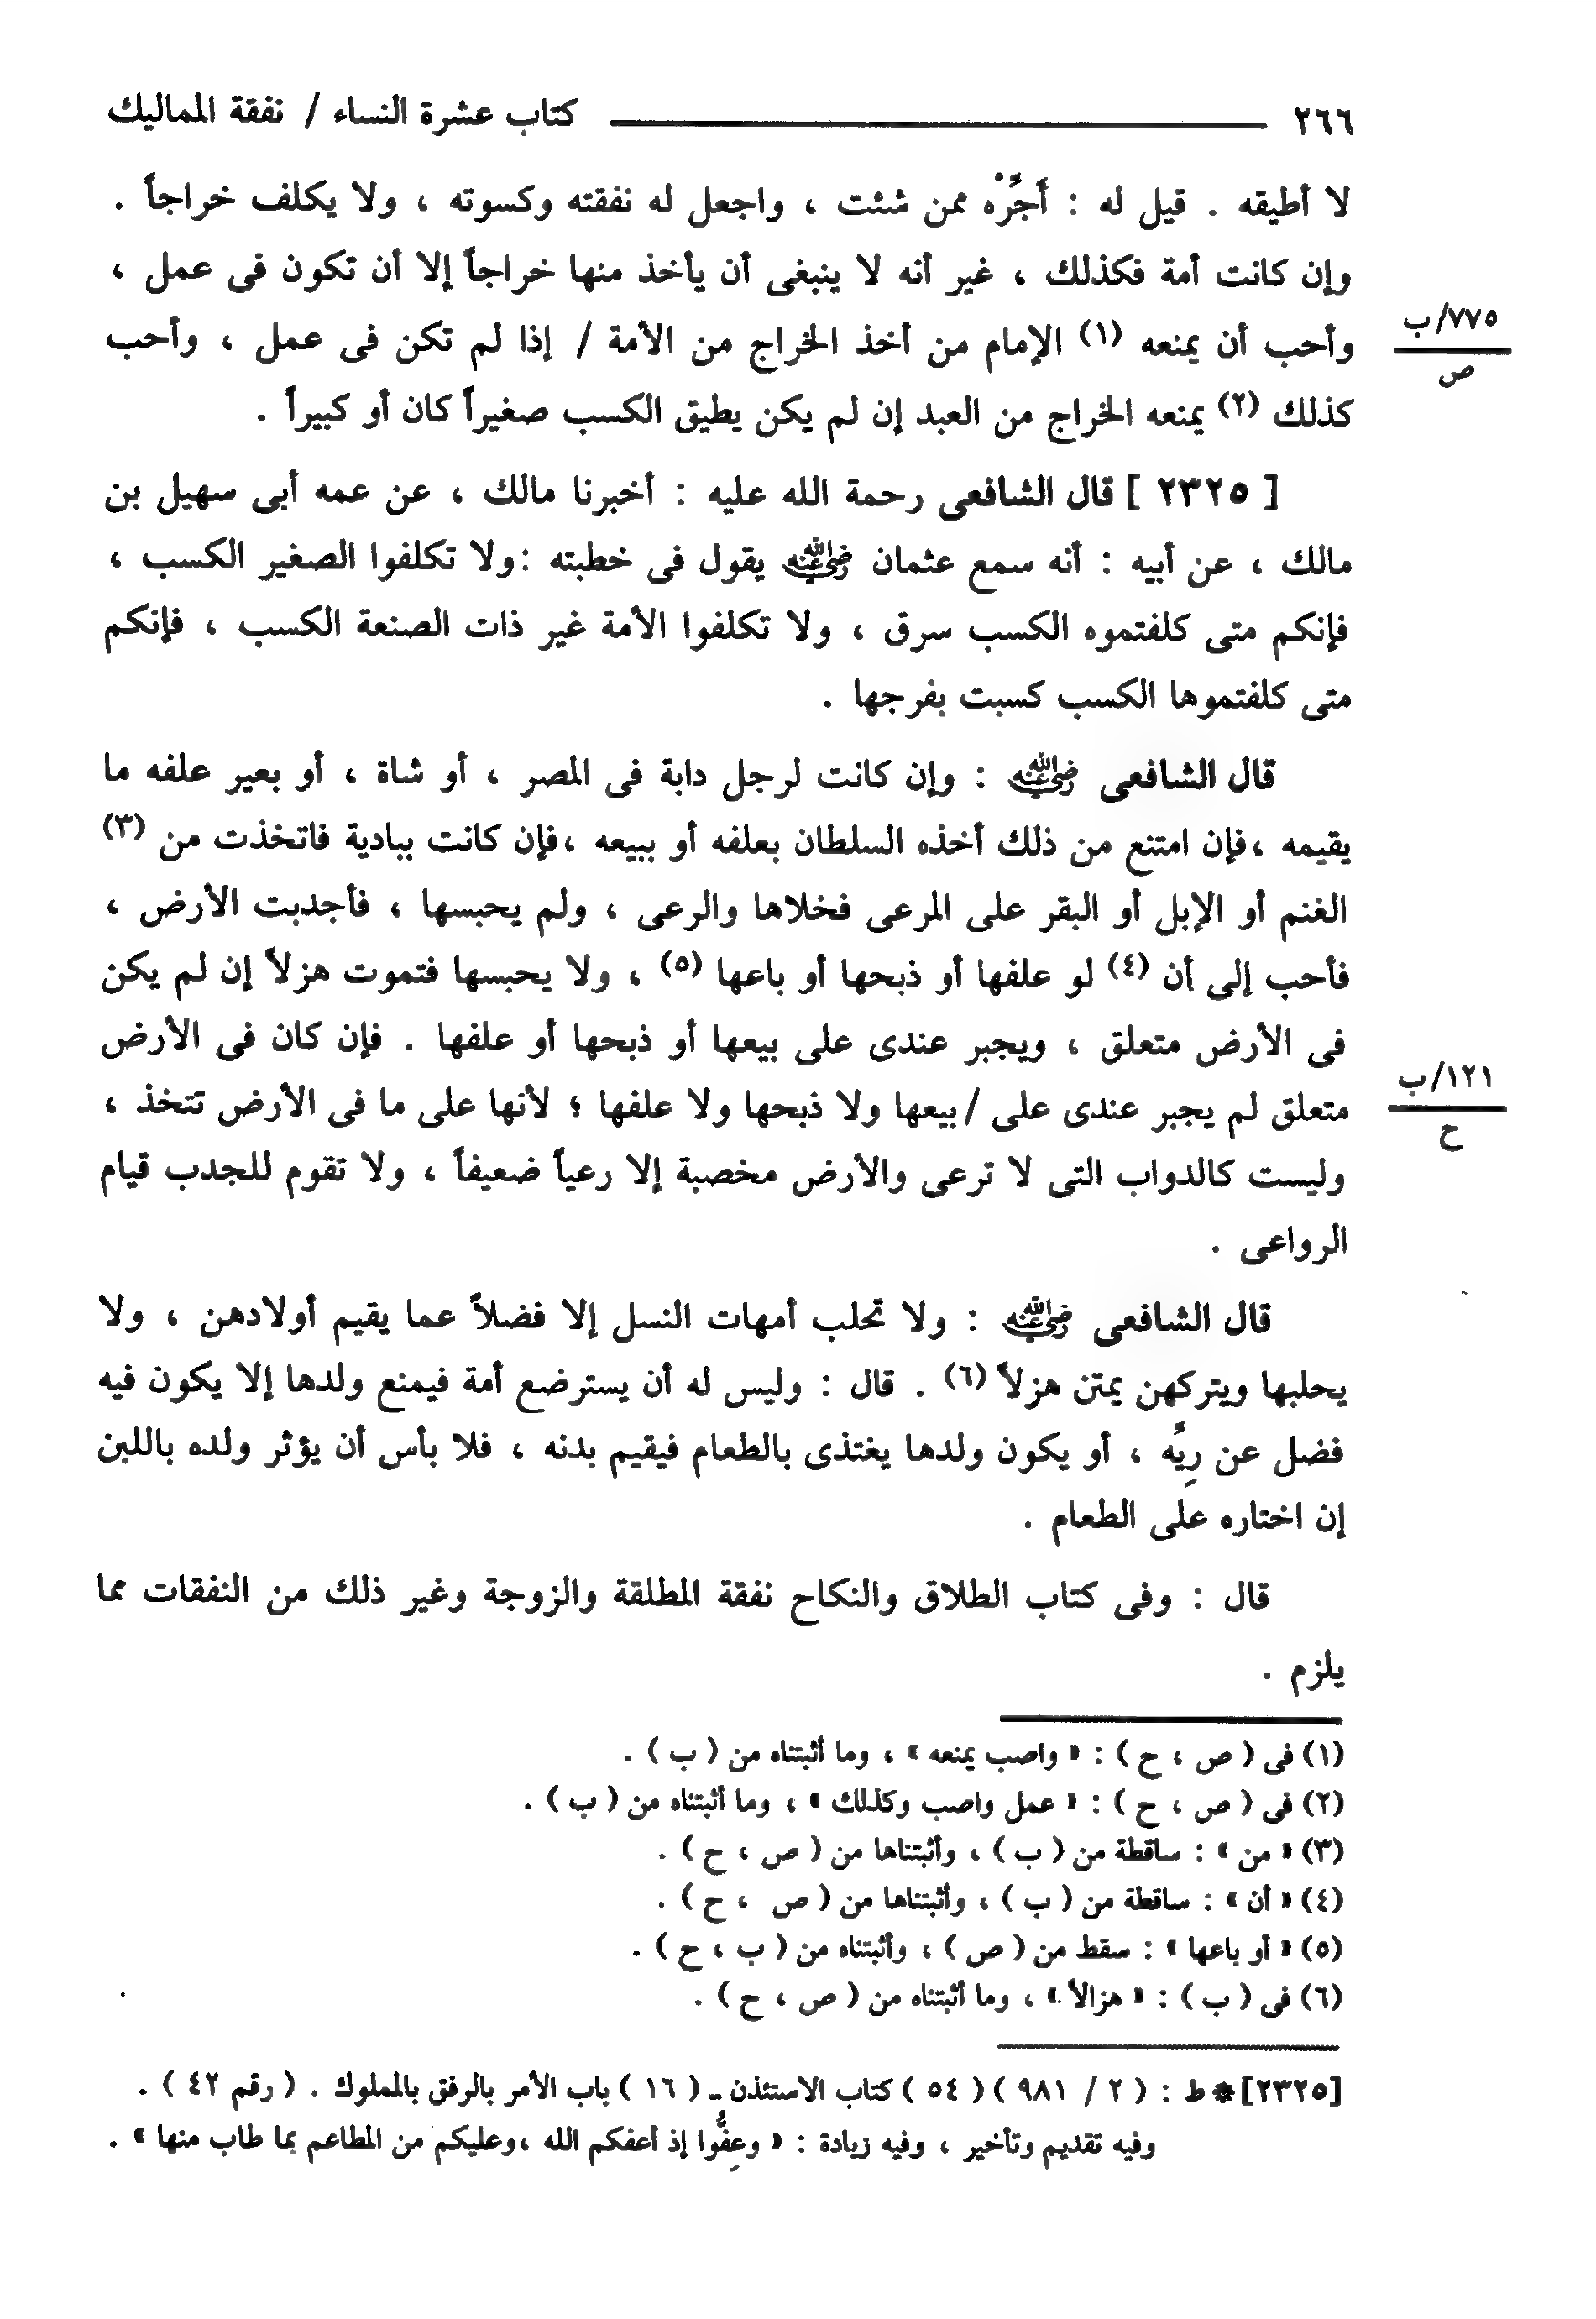 ٢٦٦ كتاب عشرة النساء / نفقة المماليك
لا أطيقه . قيل له : أَجِّرْه ممن شئت ، واجعل له نفقته وكسوته ، ولا يكلف خراجاً .
وإن كانت أمة فكذلك ، غير أنه لا ينبغى أن يأخذ منها خراجاً إلا أن تكون فى عمل ،
٧٧٥/ب
ص
وأحب أن يمنعه (١) الإمام من أخذ الخراج من الأمة / إذا لم تكن فى عمل ، وأحب
كذلك (٢) يمنعه الخراج من العبد إن لم يكن يطيق الكسب صغيراً كان أو كبيراً .
[ ٢٣٢٥ ] قال الشافعى رحمة الله عليه : أخبرنا مالك ، عن عمه أبى سهيل بن
مالك ، عن أبيه : أنه سمع عثمان رضي الله عنه يقول فى خطبته :ولا تكلفوا الصغير الكسب ،
فإنكم متى كلفتموه الكسب سرق ، ولا تكلفوا الأمة غير ذات الصنعة الكسب ، فإنكم
متى كلفتموها الكسب كسبت بفرجها .
قال الشافعى رضي الله عنه : وإن كانت لرجل دابة فى المصر ، أو شاة ، أو بعير علفه ما
يقيمه ،فإن امتنع من ذلك أخذه السلطان بعلفه أو ببيعه ،فإن كانت ببادية فاتخذت من (٣)
الغنم أو الإبل أو البقر على المرعى فخلاها والرعى ، ولم يحبسها ، فأجدبت الأرض ،
فأحب إلى أن (٤) لو علفها أو ذبحها أو باعها (٥) ، ولا يحبسها فتموت هزلاً إن لم يكن
فى الأرض متعلق ، ويجبر عندى على بيعها أو ذبحها أو علفها . فإن كان فى الأرض
١٢١/ب
ح
متعلق لم يجبر عندى على /بيعها ولا ذبحها ولا علفها ؛ لأنها على ما فى الأرض تتخذ ،
وليست كالدواب التى لا ترعى والأرض مخصبة إلا رعياً ضعيفاً ، ولا تقوم للجدب قيام
الرواعى .
قال الشافعى رضي الله عنه : ولا تحلب أمهات النسل إلا فضلاً عما يقيم أولادهن ، ولا
يحلبها ويتركهن يمتن هزلاً (٦) . قال : وليس له أن يسترضع أمة فيمنع ولدها إلا يكون فيه
فضل عن رِيِّه ، أو يكون ولدها يغتذى بالطعام فيقيم بدنه ، فلا بأس أن يؤثر ولده باللبن
إن اختاره على الطعام .
قال : وفى كتاب الطلاق والنكاح نفقة المطلقة والزوجة وغير ذلك من النفقات مما
يلزم .
(١) فى ( ص ، ح ) : « واصب يمنعه » ، وما أثبتناه من ( ب ) .
(٢) فى ( ص ، ح ) : « عمل واصب وكذلك » ، وما أثبتناه من ( ب ) .
(٣) « من » : ساقطة من ( ب ) ، وأثبتناها من ( ص ، ح ) .
(٤) « أن » : ساقطة من ( ب ) ، وأثبتناها من ( ص ، ح ) .
(٥) « أو باعها » : سقط من ( ص ) ، وأثبتناه من ( ب ، ح ) .
(٦) فى ( ب ) : « هزالاً » ، وما أثبتناه من ( ص ، ح ) .
[٢٣٢٥]* ط : ( ٢ / ٩٨١ ) ( ٥٤ ) كتاب الاستئذن ـ ( ١٦ ) باب الأمر بالرفق بالمملوك . ( رقم ٤٢ ) .
وفيه تقديم وتأخير ، وفيه زيادة : « وعِفُّوا إذ أعفكم الله ،وعليكم من المطاعم بما طاب منها » .